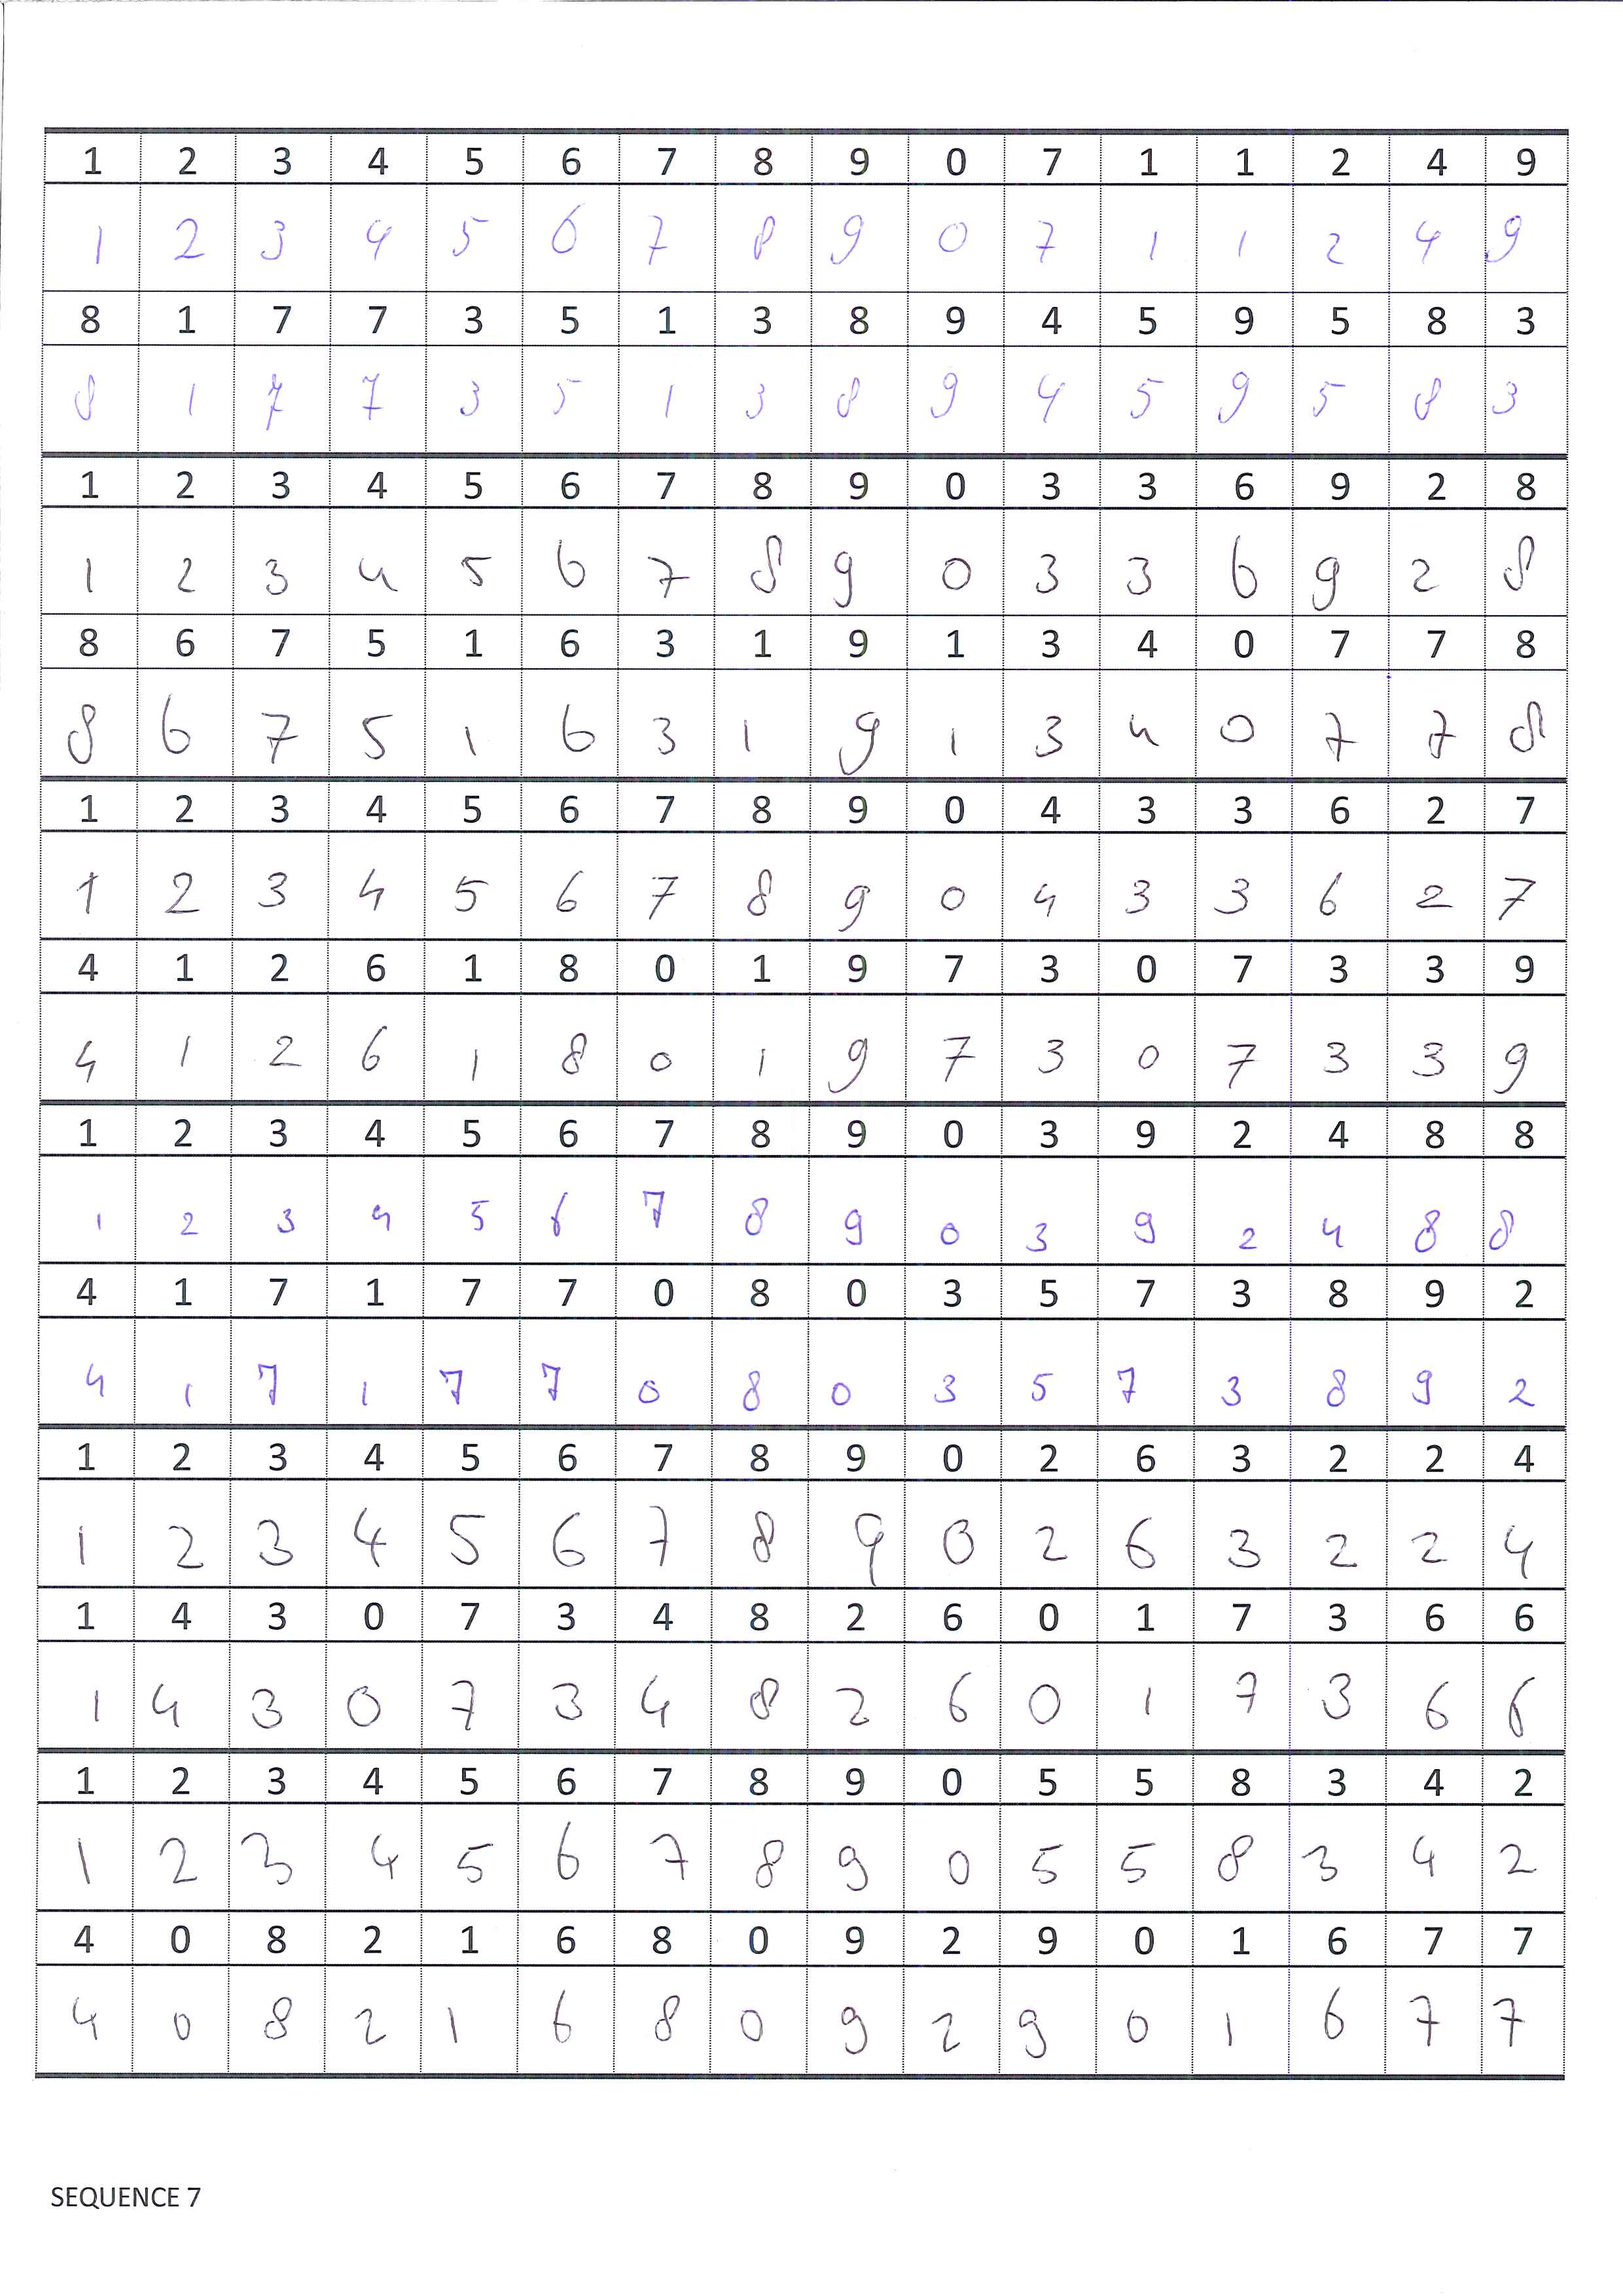 1 2 3 4 5 6 7 8 9 0 7 1 1 2 4 9
1 2 3 4 5 6 7 8 9 0 7 1 1 2 4 9
8 1 7 7 3 5 1 3 8 9 4 5 9 5 8 3
8 1 7 7 3 5 1 3 8 9 4 5 9 5 8 3
1 2 3 4 5 6 7 8 9 0 3 3 6 9 2 8
1 2 3 4 5 6 7 8 9 0 3 3 6 9 2 8
8 6 7 5 1 6 3 1 9 1 3 4 0 7 7 8
8 6 7 5 1 6 3 1 9 1 3 4 0 7 7 8
1 2 3 4 5 6 7 8 9 0 4 3 3 6 2 7
1 2 3 4 5 6 7 8 9 0 4 3 3 6 2 7
4 1 2 6 1 8 0 1 9 7 3 0 7 3 3 9
4 1 2 6 1 8 0 1 9 7 3 0 7 3 3 9
1 2 3 4 5 6 7 8 9 0 3 9 2 4 8 8
1 2 3 4 5 6 7 8 9 0 3 9 2 4 8 8
4 1 7 1 7 7 0 8 0 3 5 7 3 8 9 2
4 1 7 1 7 7 0 8 0 3 5 7 3 8 9 2
1 2 3 4 5 6 7 8 9 0 2 6 3 2 2 4
1 2 3 4 5 6 7 8 9 0 2 6 3 2 2 4
1 4 3 0 7 3 4 8 2 6 0 1 7 3 6 6
1 4 3 0 7 3 4 8 2 6 0 1 7 3 6 6
1 2 3 4 5 6 7 8 9 0 5 5 8 3 4 2
1 2 3 4 5 6 7 8 9 0 5 5 8 3 4 2
4 0 8 2 1 6 8 0 9 2 9 0 1 6 7 7
4 0 8 2 1 6 8 0 9 2 9 0 1 6 7 7
SEQUENCE 7